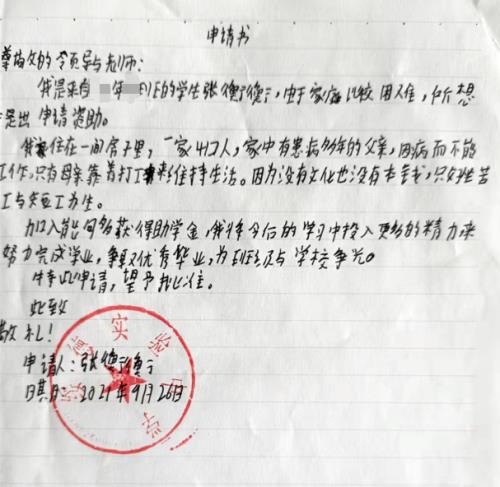 申请书
尊敬的领导与老师:
我是来自 年 班的学生张,由于家庭比较困难,所想
提出申请资助。
我家住在一间房子里,一家4口人,家中有患病多年的父亲,因病而不能
工作,只有母亲靠着打工来维持生活。因为没有文化也没有本钱,只好 苦
工与 工为生。
加入能够获得助学金,我将今后的学习中投入更多的精力来
努力完成学业,争取优秀毕业,为班级与学校争光。
特此申请,望予批准。
此致
敬礼!
申请人:张
日期:2021年9月26日
实验